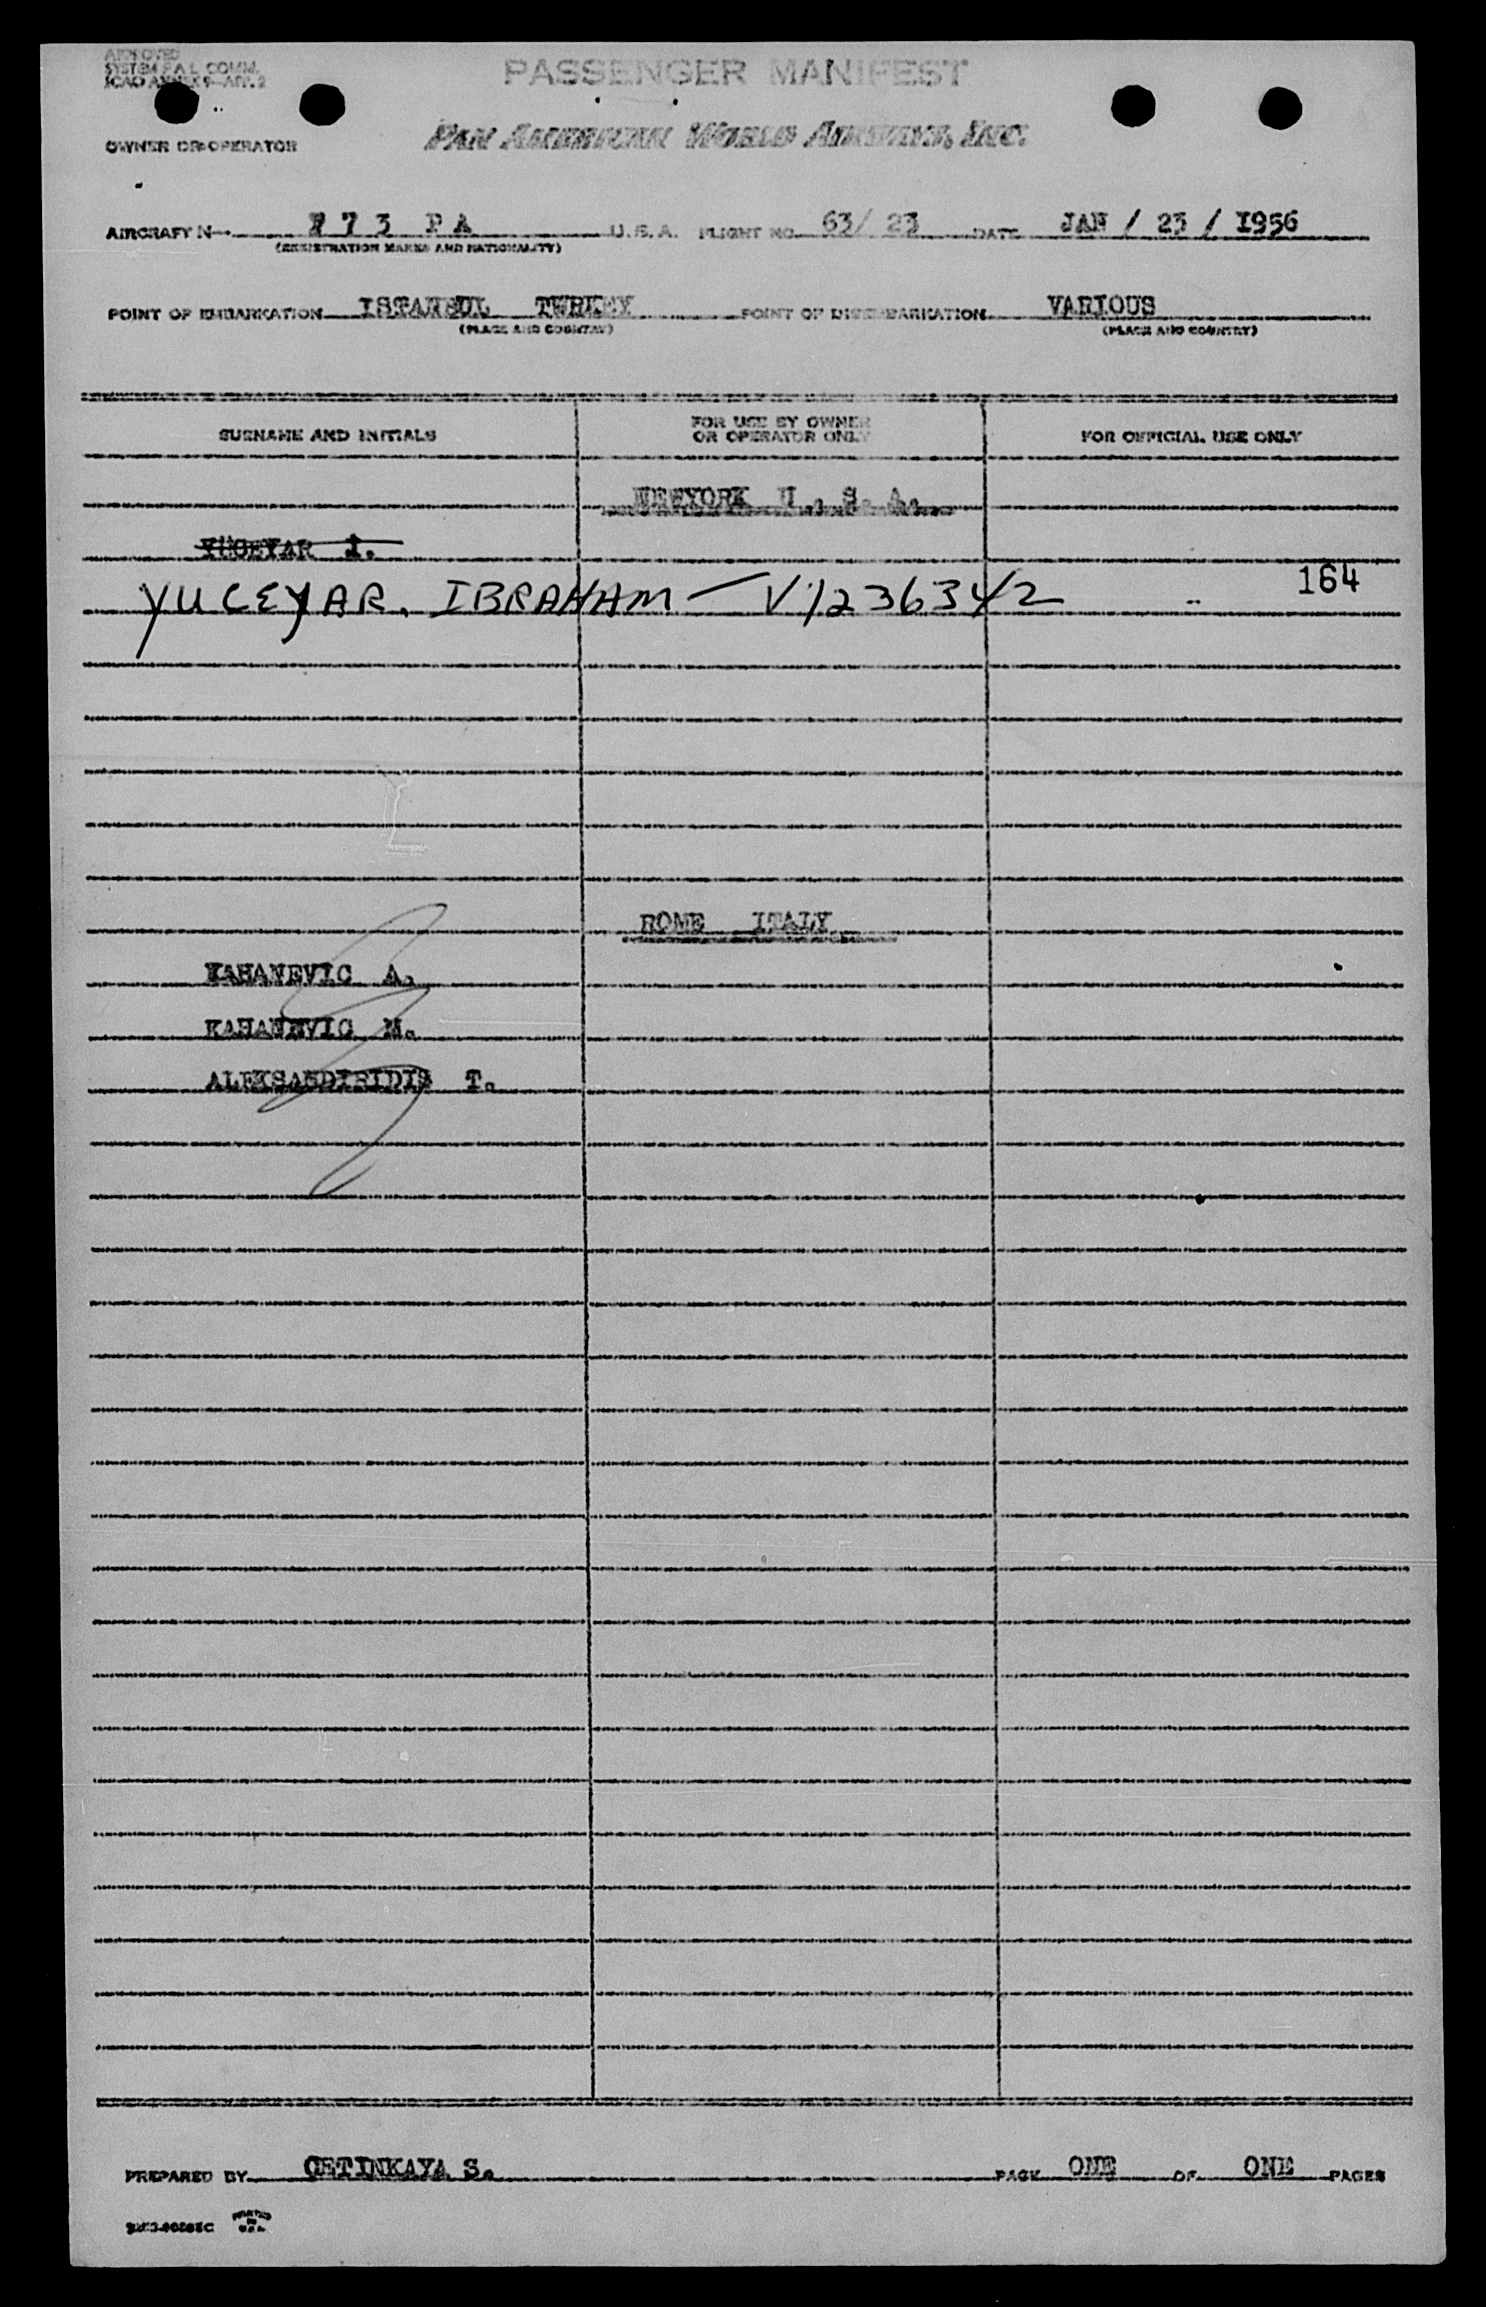 APPROVED
SYSTEM F.A.L. COMM.
ICAO ANNEX 9—APP. 2
PASSENGER MANIFEST
OWNER OR OPERATOR PAN AMERICAN WORLD AIRWAYS, INC.
AIRCRAFT N 73 PA U.S.A. FLIGHT NO. 63/ 23 DATE JAN / 23 / 1956
(REGISTRATION MARKS AND NATIONALITY)
POINT OF EMBARKATION ISTANBUL TURKEY POINT OF DISEMBARKATION VARIOUS
(PLACE AND COUNTRY) (PLACE AND COUNTRY)
SURNAME AND INITIALS FOR USE BY OWNER OR OPERATOR ONLY FOR OFFICIAL USE ONLY
NEWYORK U. S. A.
YUCEYAR I.
YUCEYAR, IBRAHAM — V1236342 164
ROME ITALY
KAHANEVIC A.
KAHANEVIC M.
ALEKSANDIRIDIS T.
PREPARED BY CETINKAYA S. PAGE ONE OF ONE PAGES
PRINTED IN U.S.A.